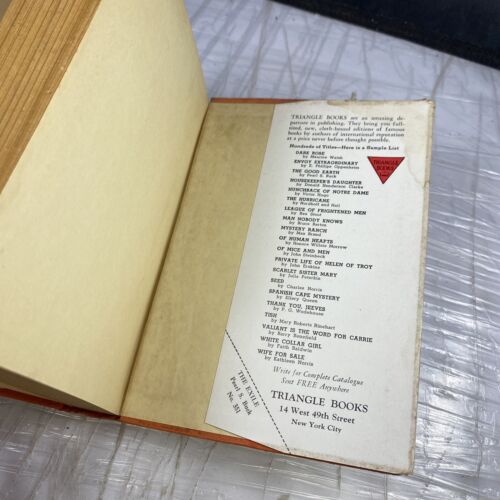 TRIANGLE BOOKS are an amazing de-
parture in publishing. They bring you full-
sized, new, cloth-bound editions of famous
books by authors of international reputation
at a price never before thought possible.
Hundreds of Titles—Here is a Sample List
DARK ROSE
by Maurice Walsh
ENVOY EXTRAORDINARY
by E. Phillips Oppenheim
THE GOOD EARTH
by Pearl S. Buck
HOUSEKEEPER'S DAUGHTER
by Donald Henderson Clarke
HUNCHBACK OF NOTRE DAME
by Victor Hugo
THE HURRICANE
by Nordhoff and Hall
LEAGUE OF FRIGHTENED MEN
by Rex Stout
MAN NOBODY KNOWS
by Bruce Barton
MYSTERY RANCH
by Max Brand
OF HUMAN HEARTS
by Honore Willsie Morrow
OF MICE AND MEN
by John Steinbeck
PRIVATE LIFE OF HELEN OF TROY
by John Erskine
SCARLET SISTER MARY
by Julia Peterkin
SEED
by Charles Norris
SPANISH CAPE MYSTERY
by Ellery Queen
THANK YOU, JEEVES
by P. G. Wodehouse
TISH
by Mary Roberts Rinehart
VALIANT IS THE WORD FOR CARRIE
by Barry Benefield
WHITE COLLAR GIRL
by Faith Baldwin
WIFE FOR SALE
by Kathleen Norris
Write for Complete Catalogue
Sent FREE Anywhere
TRIANGLE BOOKS
14 West 49th Street
New York City
TRIANGLE
BOOKS
THE EXILE
Pearl S. Buck
No. 351